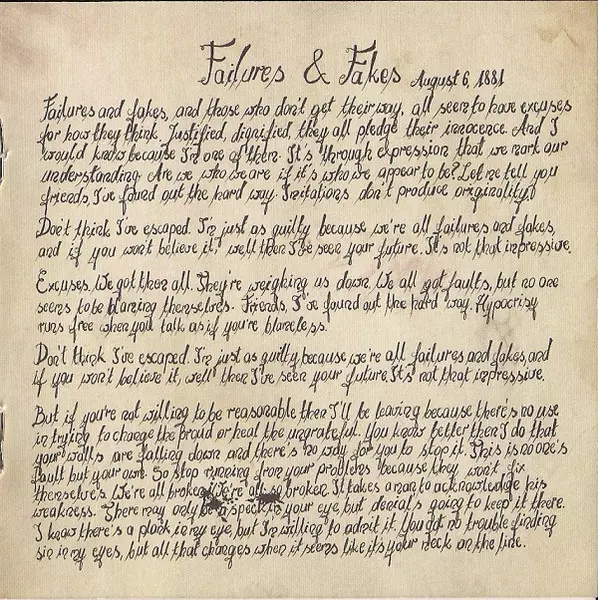 Failures & Fakes August 6, 1881
Failures and fakes, and those who don't get their way, all seem to have excuses
for how they think. Justified, dignified, they all pledge their innocence. And I
would know because I'm one of them. It's through expression that we mark our
understanding. Are we who we are if it's who we appear to be? Let me tell you
friends, I've found out the hard way. Imitations don't produce originality!
Don't think I've escaped. I'm just as guilty because we're all failures and fakes,
and if you won't believe it, well then I've seen your future. It's not that impressive.
Excuses, we got them all. They're weighing us down. We all got faults, but no one
seems to be blaming themselves. Friends, I've found out the hard way. Hypocrisy
runs free when you talk as if you're blameless.
Don't think I've escaped. I'm just as guilty because we're all failures and fakes, and
if you won't believe it, well then I've seen your future. It's not that impressive.
But if you're not willing to be reasonable then I'll be leaving because there's no use
in trying to change the proud or heal the ungrateful. You know better then I do that
your walls are falling down and there's no way for you to stop it. This is no one's
fault but your own. So stop running from your problems because they won't fix
themselves. We're all broken. We're all so broken. It takes a man to acknowledge his
weakness. There may only be a speck in your eye, but denial's going to keep it there.
I know there's a plank in my eye, but I'm willing to admit it. You got no trouble finding
sin in my eyes, but all that changes when it seems like it's your neck on the line.